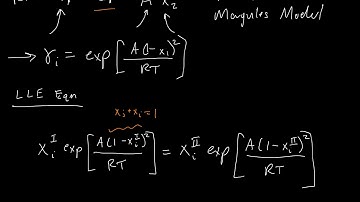 A x₂
Margules Model
→ γᵢ = exp[A(1-xᵢ)²/RT]
LLE Eqn
xᵢ+xⱼ=1
xᵢᴵ exp[A(1-xᵢᴵ)²/RT] = xᵢᴵᴵ exp[A(1-xᵢᴵᴵ)²/RT]